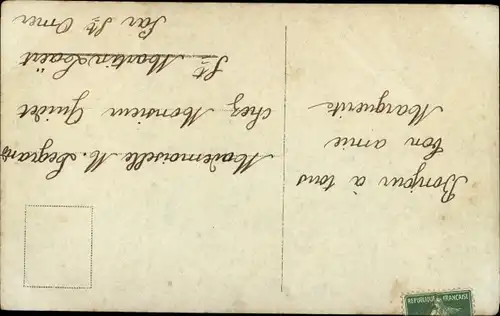 Bonjour à tous
ton amie
Marguerite
Mademoiselle M. Legrand
chez Monsieur Guidet
St Martin Laërt
Par St Omer
REPUBLIQUE FRANÇAISE